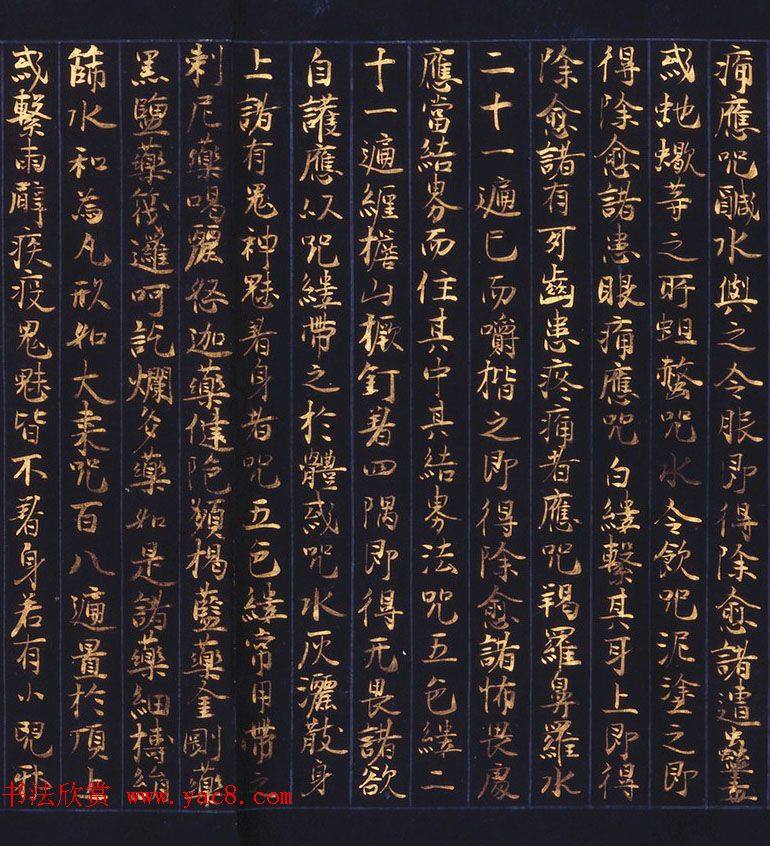 痛應咒鹹水與之令服即得除愈諸遭蠱毒
或虵蠍等之所蛆螫咒水令飲咒泥塗之即
得除愈諸患眼痛應咒白縷繫其耳上即得
除愈諸有牙齒患疼痛者應咒羯羅鼻羅水
二十一遍已而嚼楷之即得除愈諸怖畏處
應當結界而住其中其結界法咒五色縷二
十一遍纏擔山橛釘著四隅即得无畏諸欲
自護應以咒縷帶之於體或咒水灰灑散身
上諸有鬼神魅著身者咒五色縷常用帶之
刺尼藥喝麗迦藥健陀頞楬藍藥金剛藥
黑鹽藥筏邏呵訖爛多藥如是諸藥細擣絹
篩水和為丸形如大棗咒百八遍置於頂上
或繫兩臂疾疫鬼魅皆不著身若有小兒
书法欣赏 www.yac8.com